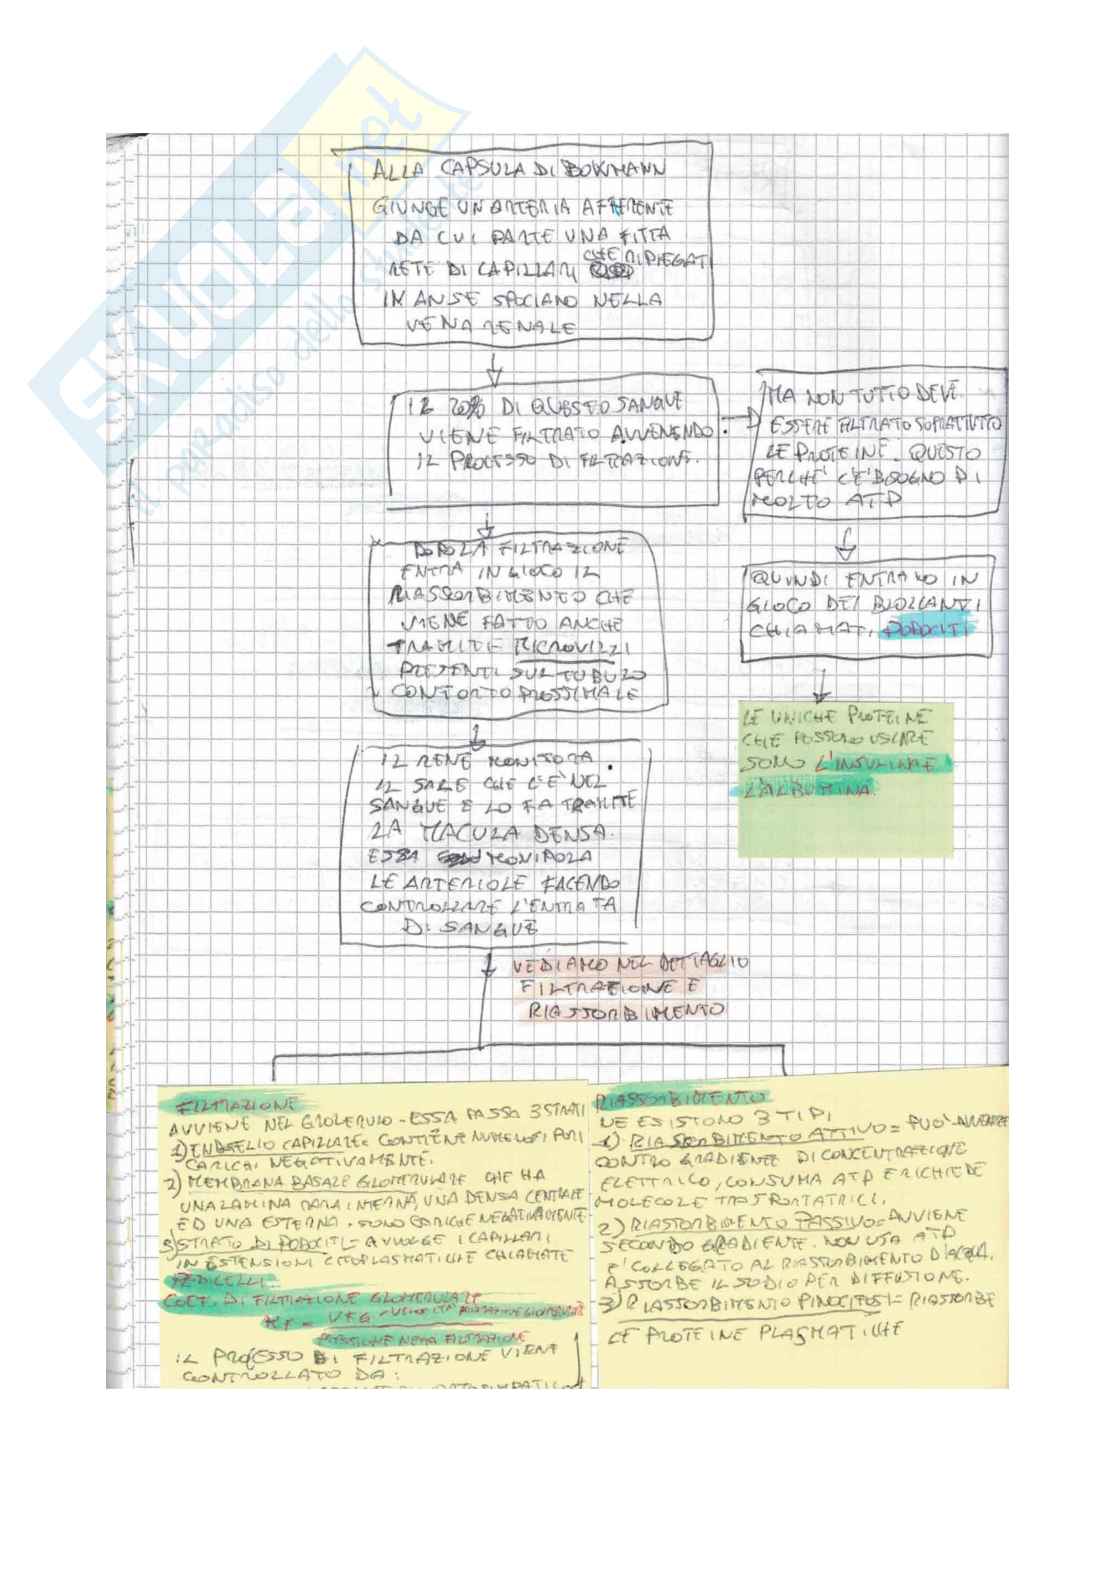 SKUOLA.net
il paradiso dello studente
ALLA CAPSULA DI BOWMANN
GIUNGE UN'ARTERIA AFFERENTE
DA CUI PARTE UNA FITTA
RETE DI CAPILLARI CHE RIPIEGATI
IN ANSE SFOCIANO NELLA
VENA RENALE
IL 20% DI QUESTO SANGUE
VIENE FILTRATO AVVENENDO
IL PROCESSO DI FILTRAZIONE.
MA NON TUTTO DEVE
ESSERE FILTRATO SOPRATTUTTO
LE PROTEINE. QUESTO
PERCHE' C'E' BISOGNO DI
MOLTO ATP
DOPO LA FILTRAZIONE
ENTRA IN GIOCO IL
RIASSORBIMENTO CHE
VIENE FATTO ANCHE
TRAMITE MICROVILLI
PRESENTI SUL TUBULO
CONTORTO PROSSIMALE
QUINDI ENTRANO IN
GIOCO DEI BLOCCANTI
CHIAMATI PODOCITI
LE UNICHE PROTEINE
CHE POSSONO USCIRE
SONO L'INSULINA E
L'ALBUMINA.
IL RENE MONITORA
IL SALE CHE C'E' NEL
SANGUE E LO FA TRAMITE
LA MACULA DENSA.
ESSA MONIPOLA
LE ARTERIOLE FACENDO
CONTROLLARE L'ENTRATA
DI SANGUE
VEDIAMO NEL DETTAGLIO
FILTRAZIONE E
RIASSORBIMENTO
FILTRAZIONE
AVVIENE NEL GLOMERULO - ESSA PASSA 3 STRATI
1) ENDOTELIO CAPILLARE = CONTIENE NUMEROSI PORI
CARICHI NEGATIVAMENTE.
2) MEMBRANA BASALE GLOMERULARE CHE HA
UNA LAMINA RARA INTERNA, UNA DENSA CENTRALE
ED UNA ESTERNA. SONO CARICHE NEGATIVAMENTE
3) STRATO DI PODOCITI = AVVOLGE I CAPILLARI
IN ESTENSIONI CITOPLASMATICHE CHIAMATE
PEDICELLI.
COEF. DI FILTRAZIONE GLOMERULARE
KF = VFG - VELOCITÀ FILTRAZIONE GLOMERULARE
PRESSIONE NETTA FILTRAZIONE
IL PROCESSO DI FILTRAZIONE VIENE
CONTROLLATO DA:
RIASSORBIMENTO
NE ESISTONO 3 TIPI
1) RIASSORBIMENTO ATTIVO = PUO' AVVENIRE
CONTRO GRADIENTE DI CONCENTRAZIONE
ELETTRICO, CONSUMA ATP E RICHIEDE
MOLECOLE TRASPORTATRICI.
2) RIASSORBIMENTO PASSIVO = AVVIENE
SECONDO GRADIENTE. NON USA ATP
E' COLLEGATO AL RIASSORBIMENTO D'ACQUA.
ASSORBE IL SODIO PER DIFFUSIONE.
3) RIASSORBIMENTO PINOCITOSI = RIASSORBE
LE PROTEINE PLASMATICHE